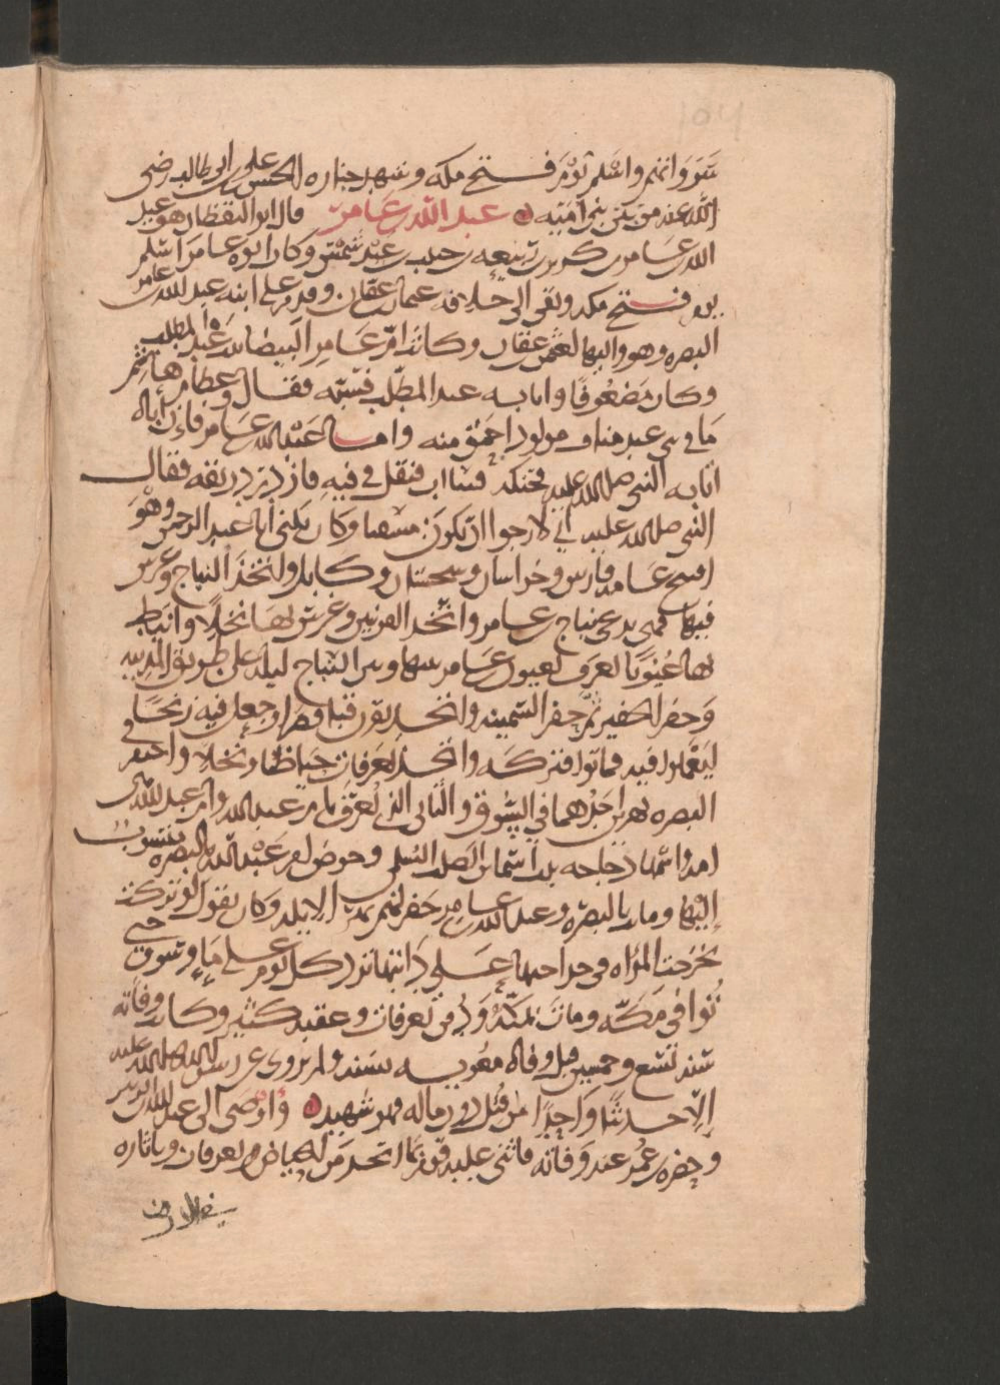 واسلم يوم فتح مكة وشهد جنازه الحسن بن علي بن ابي طالب رضي
الله عنه من بين بني امية عبد الله بن عامر قال ابو اليقظان هو عبد
الله بن عامر بن كريز بن ربيعه بن حبيب بن عبد شمس وكان ابوه عامر اسلم
يوم فتح مكه وبقى الى خلافه عثمن بن عفان وقدم على ابنه عبد الله بن عامر
البصره وهو واليها لعثمن بن عفان وكانت ام عامر البيضا بنت عبد المطلب
وكان مضعوفا واتا به عبد المطلب فقال وعظام هاشم
ما في بني عبد مناف مولود احمق منه واما عبد الله بن عامر فان اباه
اتا به النبي صلى الله عليه فحنكه فتثاب فتفل في فيه فازدرد ريقه فقال
النبي صلى الله عليه اني لارجوا ان يكون مسقيا وكان يكنى ابا عبد الرحمن وهو
افتتح عامه فارس وخراسان وسجستان وكابل واتخذ النباج وغرس
فيها فهي تدعى نباج بن عامر واتخذ القريتين وغرس لها نخلا وانبط
لها عيونا تعرف بعيون بن عامر بينها وبين النباج ليله على طريق المدينه
وحفر الحفير ثم حفر السمينه واتخذ بقرب قباء قصرا وجعل فيه زنجا
ليعملوا فيه فماتوا فتركه واتخذ بعرفات حياضا ونخلا واحتفر
البصره نهرين احدهما في السوق والثاني الذي يعرف بام عبد الله وام عبد الله بن
امه واسمها دجاجه بنت اسما بن الصلت السلمي وحوض ام عبد الله بالبصره منسوب
اليها ومات بالبصره وعبد الله بن عامر حفر نهر الابله وكان يقول لو تركت
لخرجت المراه في حداجتها على دابتها ترد كل يوم على ما وسوق حتى
توافي مكة ومات بمكة ودفن بعرفات وعقبه كثير وكانت وفاته
سنه تسع وخمسين قبل وفاه معويه بسنه ولم يروى عن رسول الله صلى الله عليه
الا حديثا واحدا من قتل دون ماله فهو شهيد واوصى الى عبد الله بن الزبير
وحضره بن عمر عند وفاته فاثنى عليه قوم بما اتخذ من الحياض بعرفات وباثاره